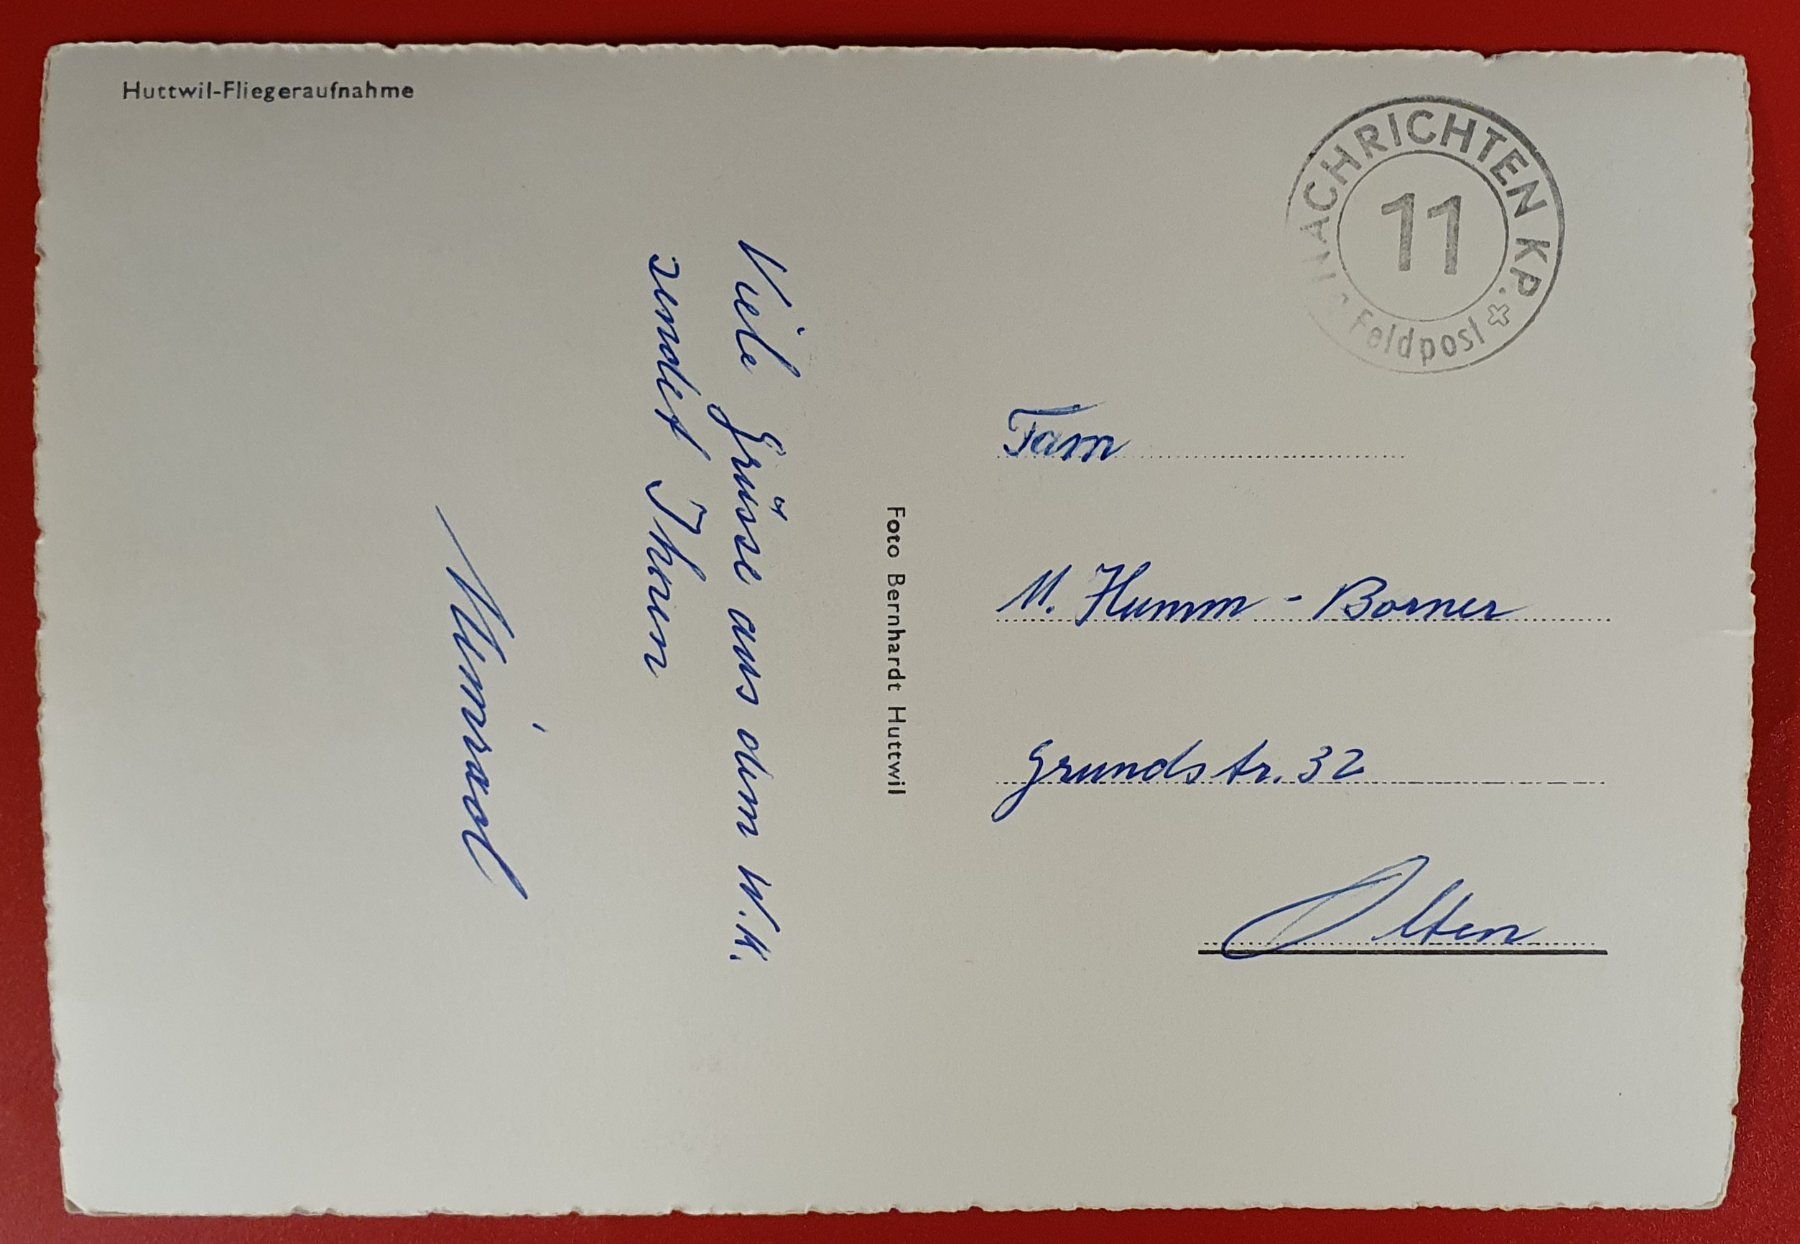 Huttwil-Fliegeraufnahme
NACHRICHTEN KP.
11
Feldpost
Viele Grüsse aus dem W.K.
sendet Ihnen
Foto Bernhardt Huttwil
Fam
M. Humm-Borner
Grundstr. 32
Olten